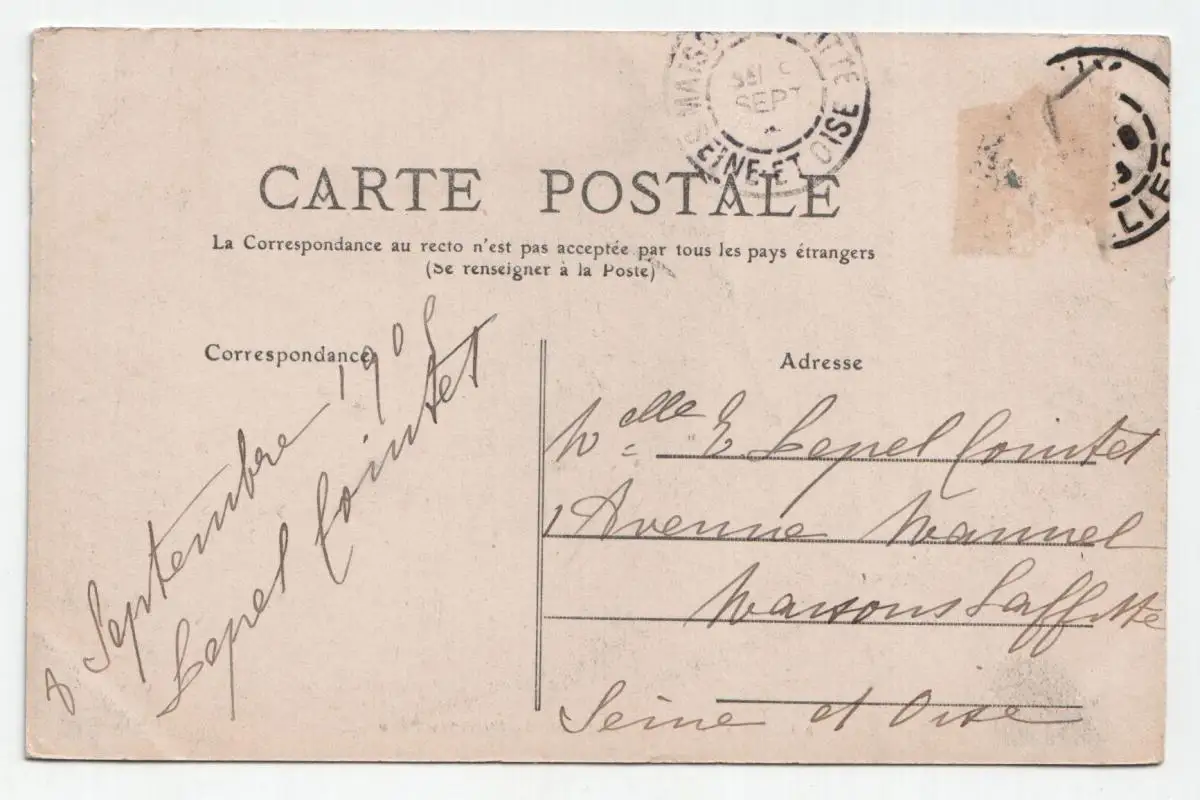 SEINE-ET-OISE
SEPT
CARTE POSTALE
La Correspondance au recto n'est pas acceptée par tous les pays étrangers
(Se renseigner à la Poste)
Correspondance
8 Septembre 1905
Lepel Cointet
Adresse
Melle E. Lepel Cointet
1 Avenue Mannel
Maisons Laffitte
Seine et Oise